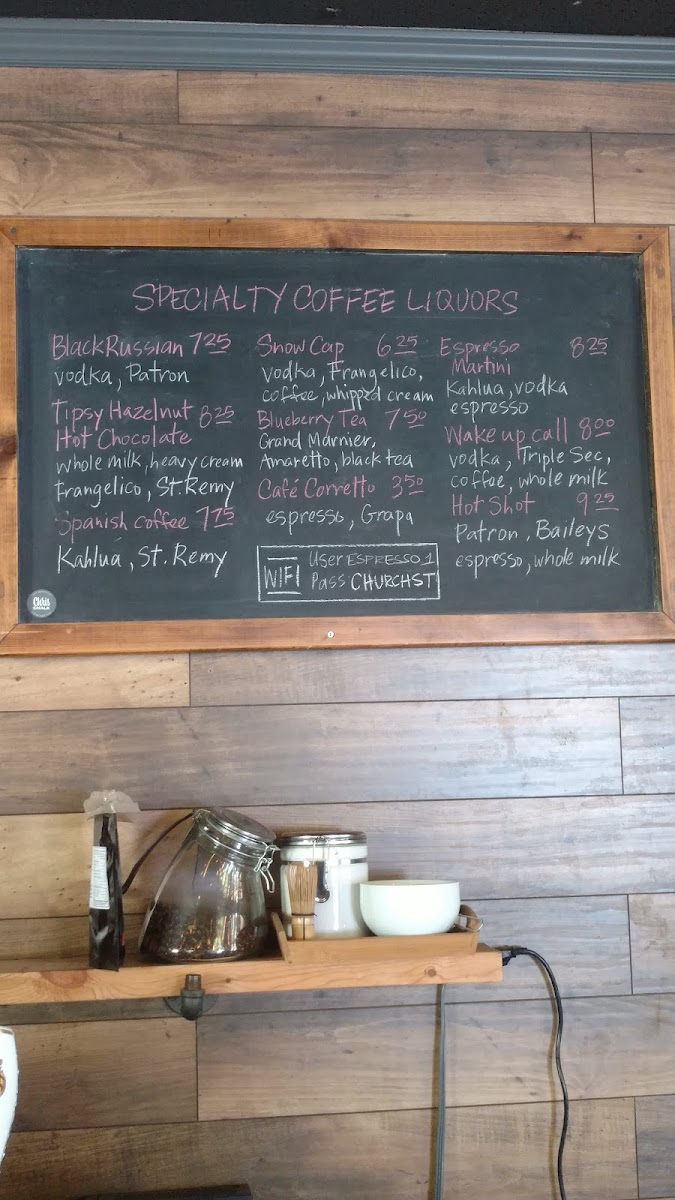 SPECIALTY COFFEE LIQUORS
Black Russian 7 25
vodka, Patron
Tipsy Hazelnut 8 25
Hot Chocolate
whole milk, heavy cream
Frangelico, St. Remy
Spanish coffee 7 75
Kahlua, St. Remy
Snow Cap 6 25
vodka, Frangelico,
coffee, whipped cream
Blueberry Tea 7 50
Grand Marnier,
Amaretto, black tea
Café Corretto 3 50
espresso, Grapa
WIFI
User ESPRESSO 1
Pass CHURCHST
Espresso 8 25
Martini
Kahlua, vodka
espresso
Wake up call 8 00
vodka, Triple Sec,
coffee, whole milk
Hot Shot 9 25
Patron, Baileys
espresso, whole milk
Chris
CHALK